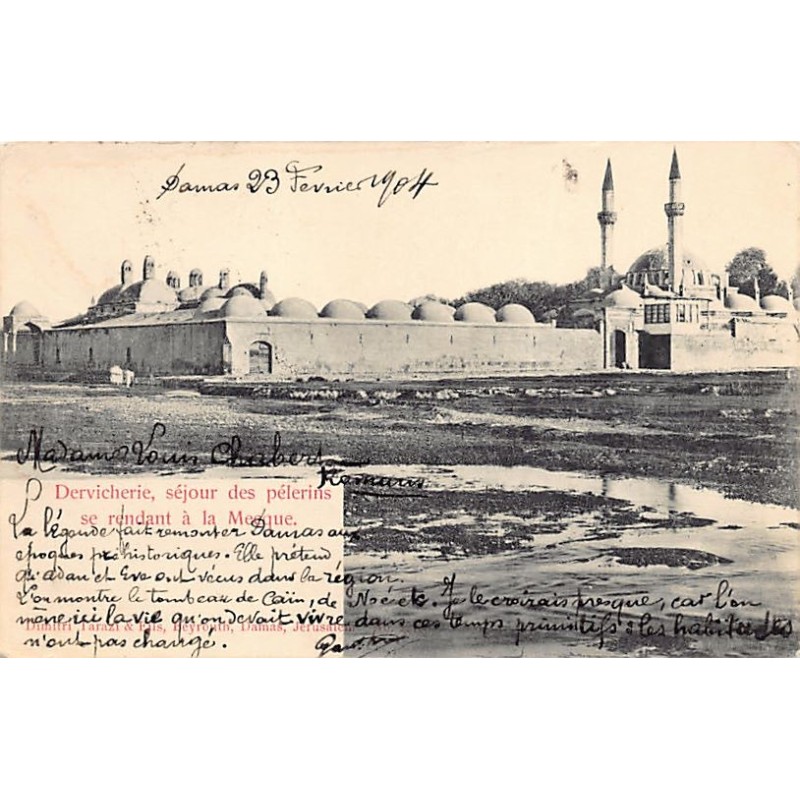 Damas 23 Fevrier 1904
Madame Louis Chabert
Dervicherie, séjour des pélerins
se rendant à la Mecque.
La légende fait remonter Damas aux
epoques préhistoriques. Elle prétend
qu'adam et Eve ont vécus dans la région.
L'on montre le tombeau de Caïn, de Noé etc. Je le croirais presque, car l'on
mène ici la vie qu'on devait vivre dans ces temps primitifs & les habitudes
n'ont pas changé.
Dimitri Tarazi & Fils, Beyrouth, Damas, Jérusalem